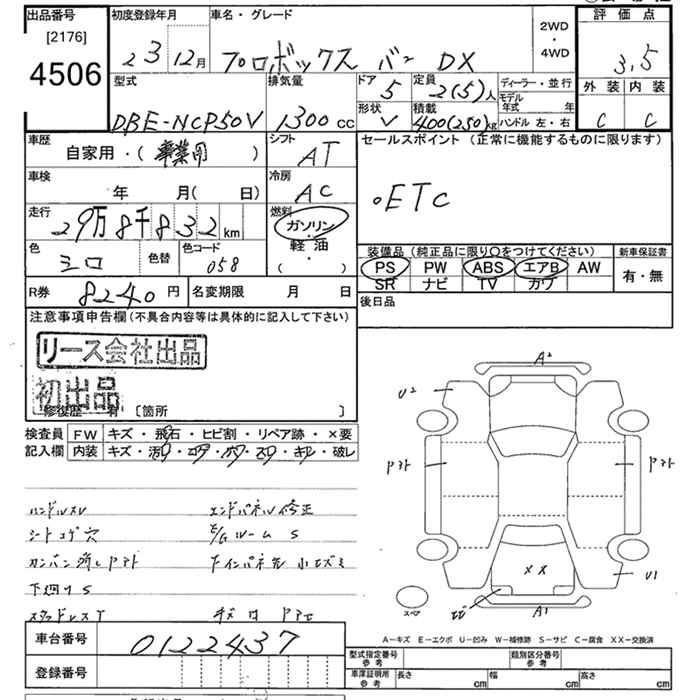 出品番号 初度登録年月 車名・グレード 2WD・4WD 評価点
[2176] 4506 23 12月 プロボックス バン DX 3.5
型式 排気量 ドア 5 定員 2(5)人 ディーラー・並行 外装 内装
DBE-NCP50V 1300cc 形状 V 積載 400(250)kg モデル年式 年 ハンドル 左・右 C C
車歴 自家用・(事業用) シフト AT セールスポイント (正常に機能するものに限ります)
車検 年 月(日) 冷房 AC 。ETC
走行 29万8千832km 燃料 ガソリン・軽油 ( )
色 シロ 色替 色コード 058 装備品(純正品に限り○をつけてください) 新車保証書
PS PW ABS エアB AW 有・無
SR ナビ TV カワ
R券 8240円 名変期限 月 日 後日品
注意事項申告欄(不具合内容等は具体的に記入して下さい)
リース会社出品
初出品
修復歴 有 〔箇所 〕
検査員 FW キズ・飛石・ヒビ割・リペア跡・×要
記入欄 内装 キズ・汚れ・コゲ・ホツ・スリ・キレ・破レ
ハンドルスレ エンドパネル修正
シートコゲ穴 E/Gルーム S
カンバン消しアト
下廻りS
スタッドレスT
A2
U2
アト アト
XX
U1
A1
スペア
A-キズ E-エクボ U-凹み W-補修跡 S-サビ C-腐食 XX-交換済
車台番号 0122437 型式指定番号 参考 類別区分番号 参考
登録番号 車庫証明用 参考 長さ cm 幅 cm 高さ cm